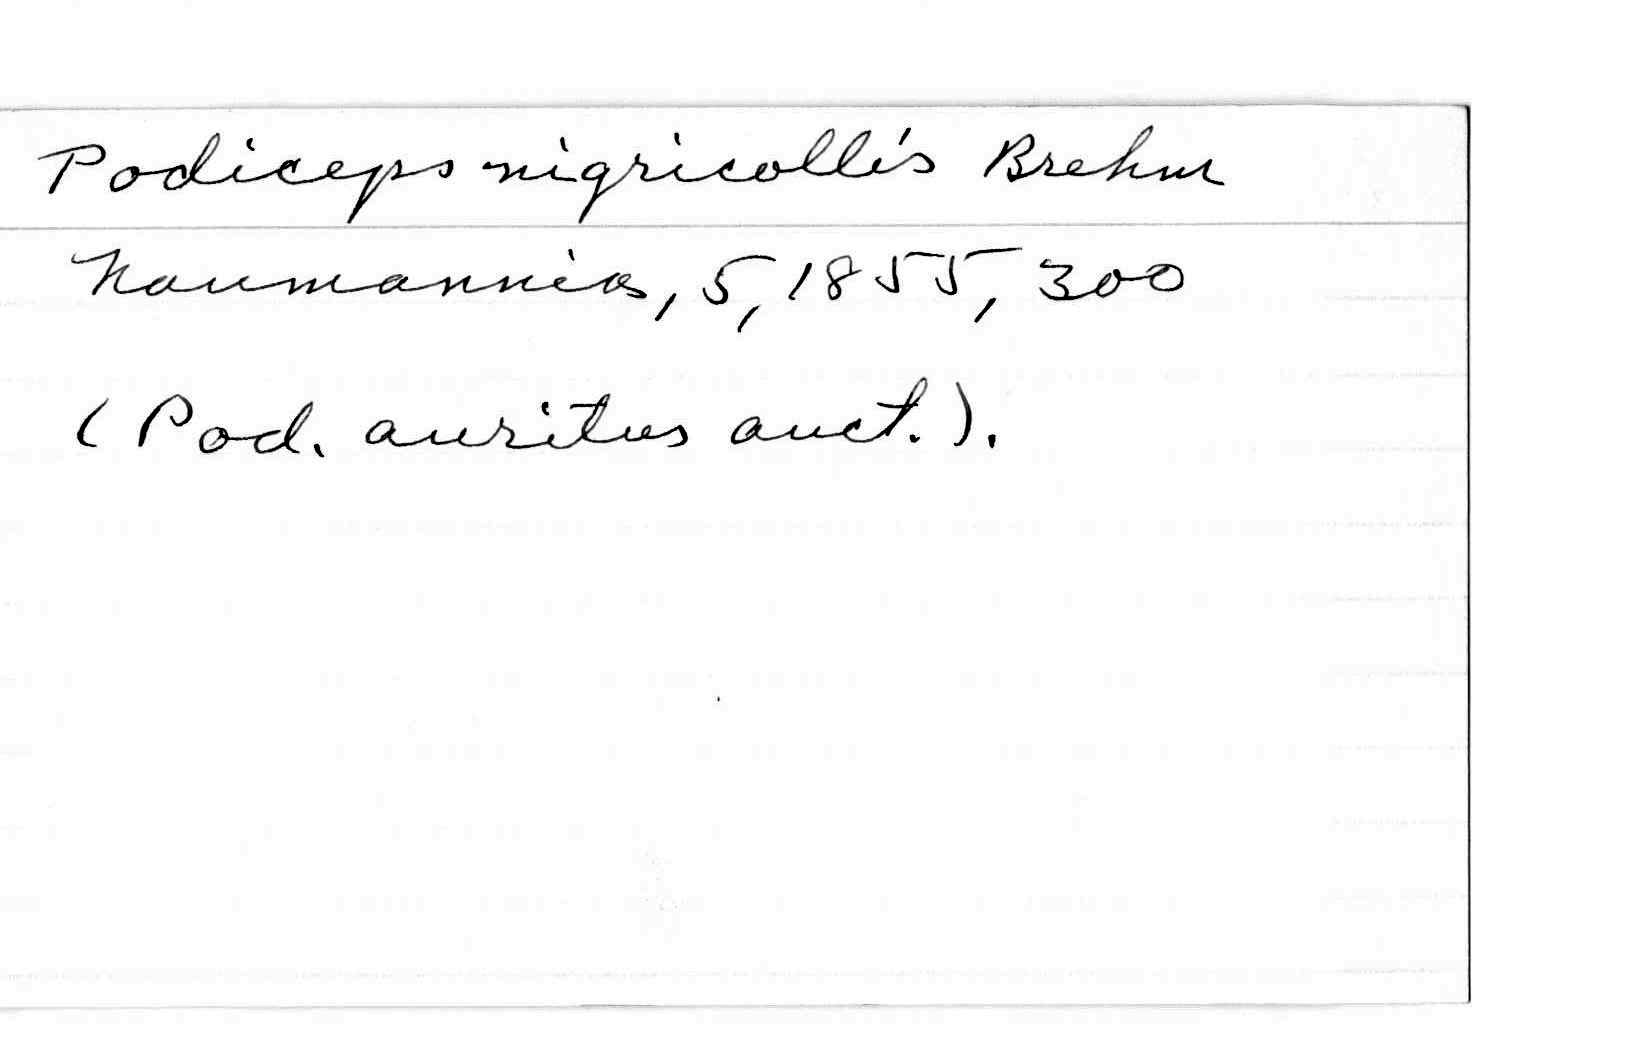 Podiceps nigricollis Brehm
Naumannia, 5, 1855, 300
(Pod. auritus auct.).